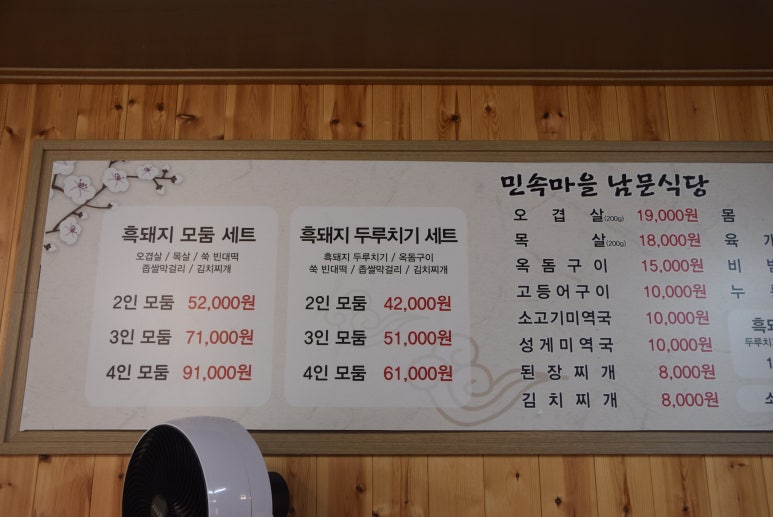 흑돼지 모둠 세트
오겹살 / 목살 / 쑥 빈대떡
좁쌀막걸리 / 김치찌개
2인 모둠 52,000원
3인 모둠 71,000원
4인 모둠 91,000원
흑돼지 두루치기 세트
흑돼지 두루치기 / 옥돔구이
쑥 빈대떡 / 좁쌀막걸리 / 김치찌개
2인 모둠 42,000원
3인 모둠 51,000원
4인 모둠 61,000원
민속마을 남문식당
오겹살(200g) 19,000원
목살(200g) 18,000원
옥돔구이 15,000원
고등어구이 10,000원
소고기미역국 10,000원
성게미역국 10,000원
된장찌개 8,000원
김치찌개 8,000원
몸
육
비
누
흑도
두루치기